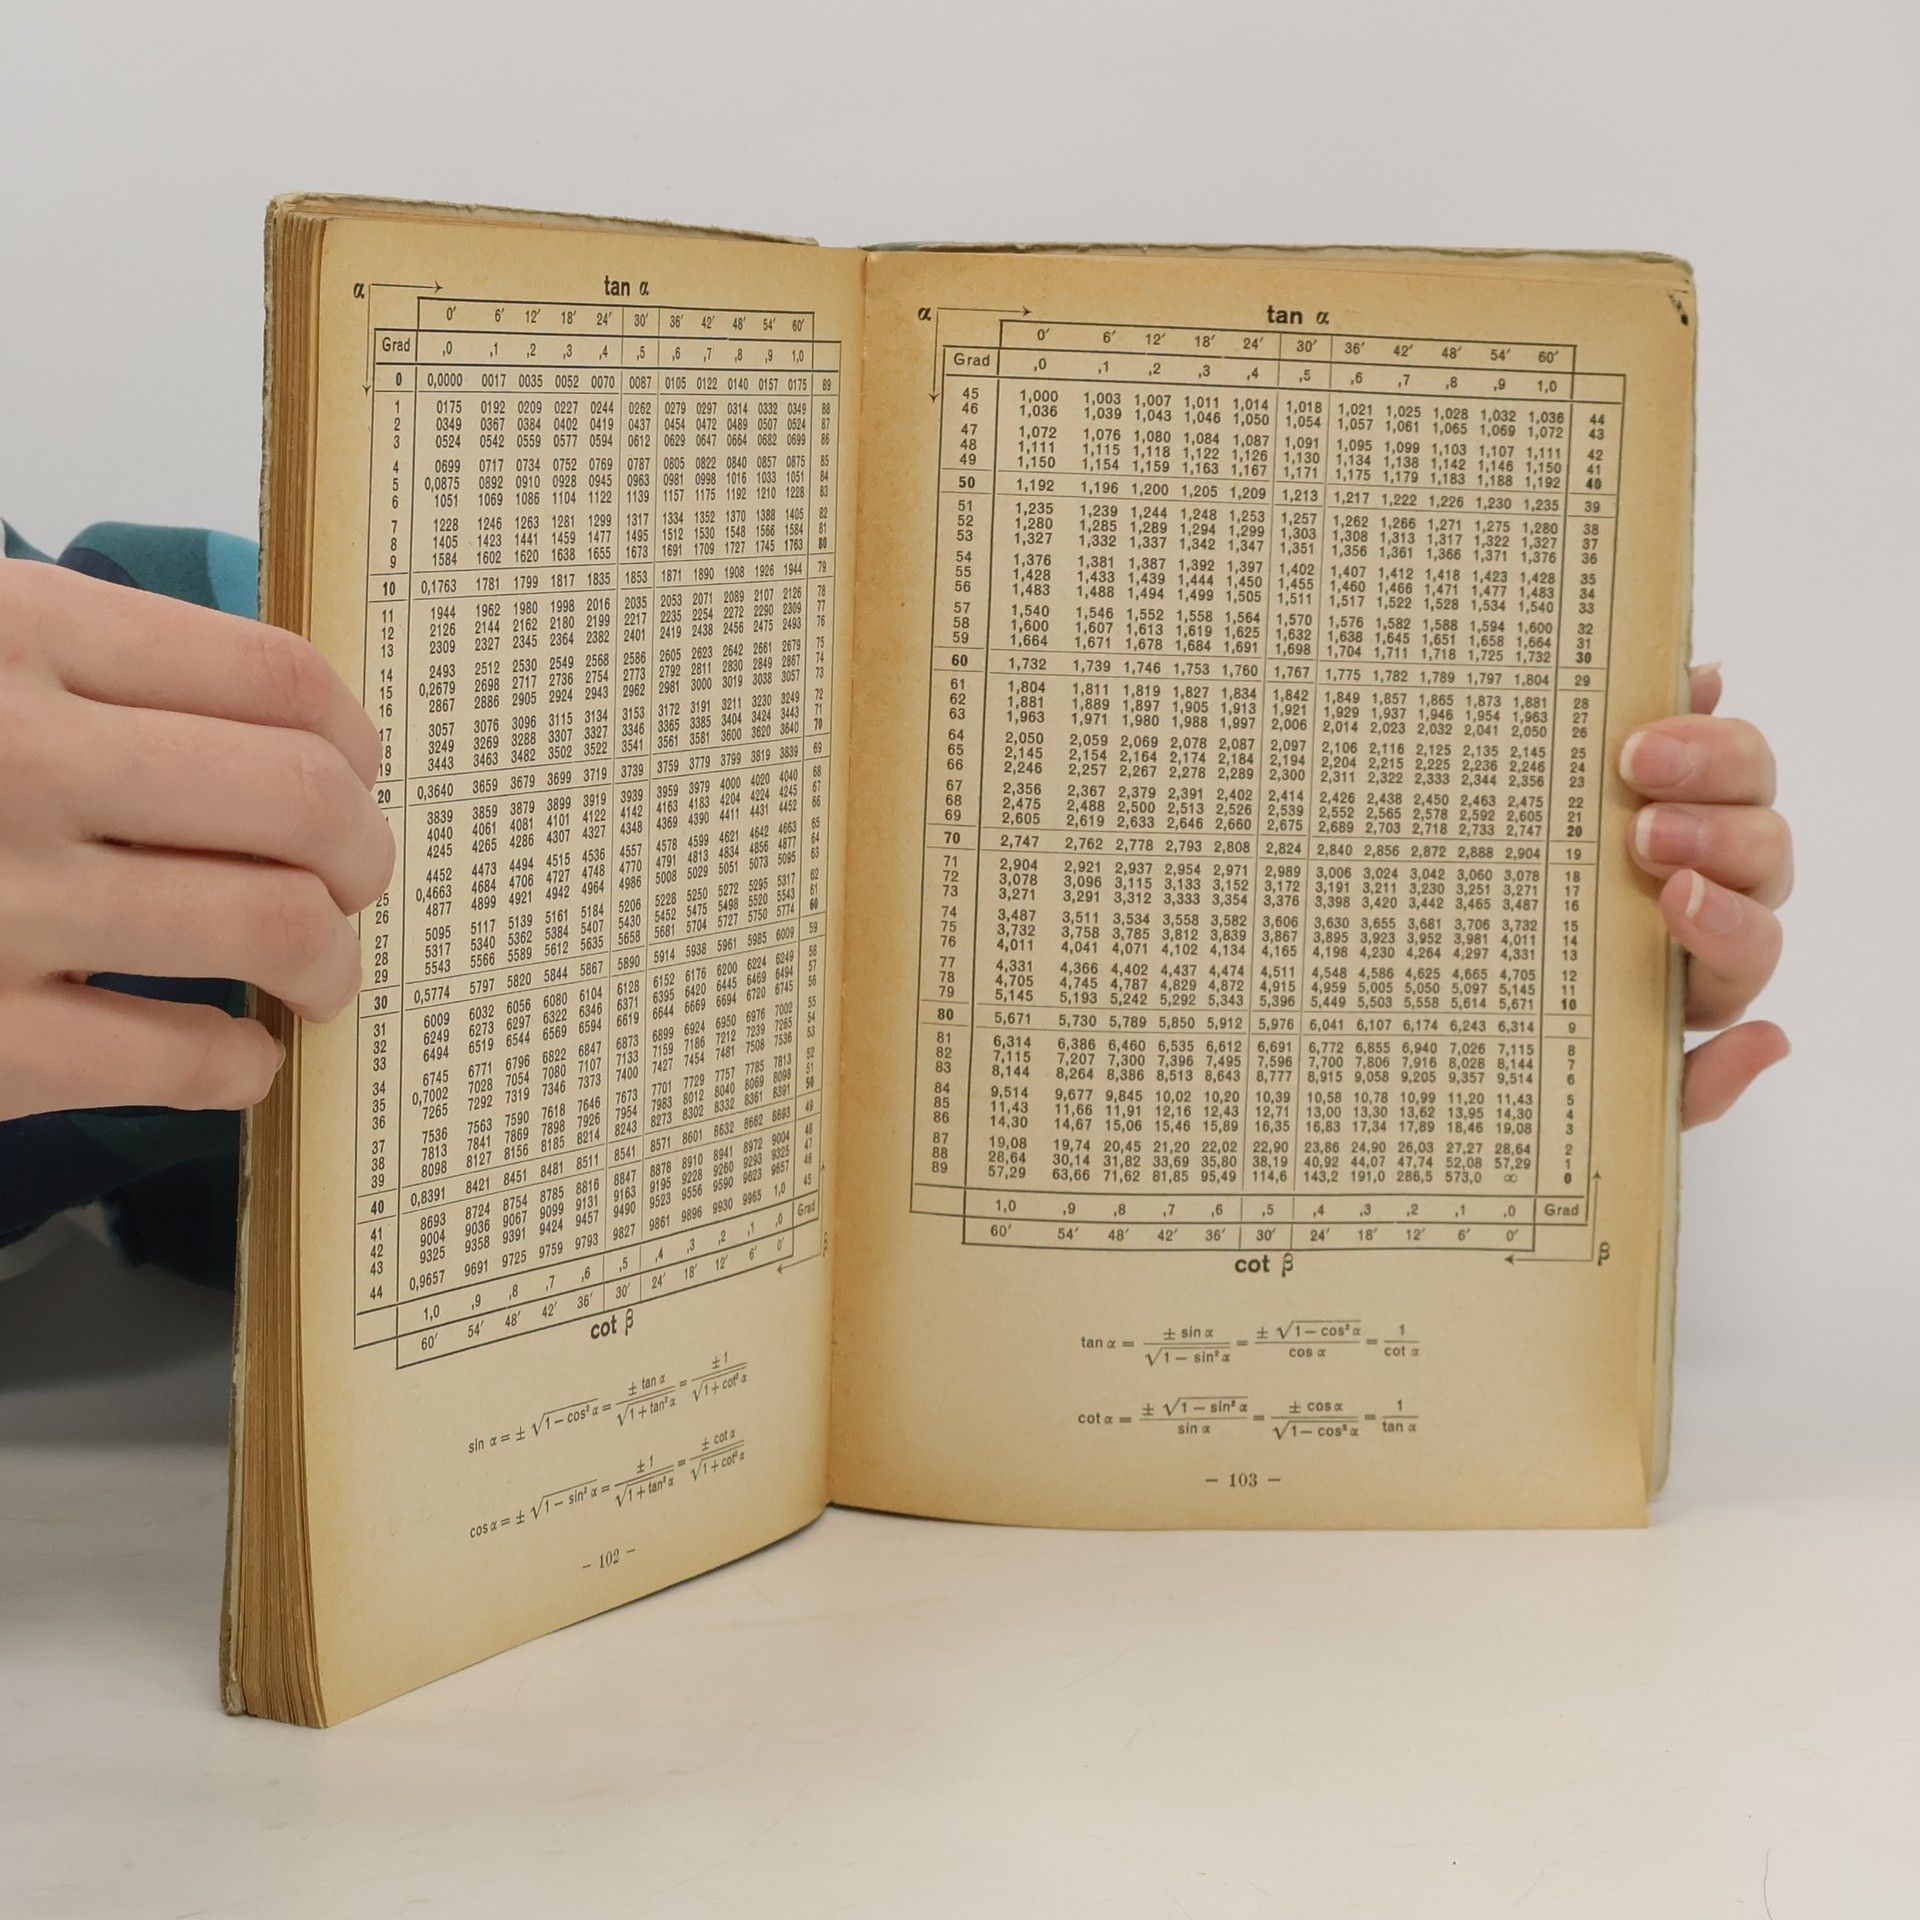 α tan α
0′ 6′ 12′ 18′ 24′ 30′ 36′ 42′ 48′ 54′ 60′
Grad ,0 ,1 ,2 ,3 ,4 ,5 ,6 ,7 ,8 ,9 1,0
0 0,0000 0017 0035 0052 0070 0087 0105 0122 0140 0157 0175 89
1 0175 0192 0209 0227 0244 0262 0279 0297 0314 0332 0349 88
2 0349 0367 0384 0402 0419 0437 0454 0472 0489 0507 0524 87
3 0524 0542 0559 0577 0594 0612 0629 0647 0664 0682 0699 86
4 0699 0717 0734 0752 0769 0787 0805 0822 0840 0857 0875 85
5 0,0875 0892 0910 0928 0945 0963 0981 0998 1016 1033 1051 84
6 1051 1069 1086 1104 1122 1139 1157 1175 1192 1210 1228 83
7 1228 1246 1263 1281 1299 1317 1334 1352 1370 1388 1405 82
8 1405 1423 1441 1459 1477 1495 1512 1530 1548 1566 1584 81
9 1584 1602 1620 1638 1655 1673 1691 1709 1727 1745 1763 80
10 0,1763 1781 1799 1817 1835 1853 1871 1890 1908 1926 1944 79
11 1944 1962 1980 1998 2016 2035 2053 2071 2089 2107 2126 78
12 2126 2144 2162 2180 2199 2217 2235 2254 2272 2290 2309 77
13 2309 2327 2345 2364 2382 2401 2419 2438 2456 2475 2493 76
14 2493 2512 2530 2549 2568 2586 2605 2623 2642 2661 2679 75
15 0,2679 2698 2717 2736 2754 2773 2792 2811 2830 2849 2867 74
16 2867 2886 2905 2924 2943 2962 2981 3000 3019 3038 3057 73
17 3057 3076 3096 3115 3134 3153 3172 3191 3211 3230 3249 72
18 3249 3269 3288 3307 3327 3346 3365 3385 3404 3424 3443 71
19 3443 3463 3482 3502 3522 3541 3561 3581 3600 3620 3640 70
20 0,3640 3659 3679 3699 3719 3739 3759 3779 3799 3819 3839 69
3839 3859 3879 3899 3919 3939 3959 3979 4000 4020 4040 68
4040 4061 4081 4101 4122 4142 4163 4183 4204 4224 4245 67
4245 4265 4286 4307 4327 4348 4369 4390 4411 4431 4452 66
4452 4473 4494 4515 4536 4557 4578 4599 4621 4642 4663 65
25 0,4663 4684 4706 4727 4748 4770 4791 4813 4834 4856 4877 64
26 4877 4899 4921 4942 4964 4986 5008 5029 5051 5073 5095 63
27 5095 5117 5139 5161 5184 5206 5228 5250 5272 5295 5317 62
28 5317 5340 5362 5384 5407 5430 5452 5475 5498 5520 5543 61
29 5543 5566 5589 5612 5635 5658 5681 5704 5727 5750 5774 60
30 0,5774 5797 5820 5844 5867 5890 5914 5938 5961 5985 6009 59
31 6009 6032 6056 6080 6104 6128 6152 6176 6200 6224 6249 58
32 6249 6273 6297 6322 6346 6371 6395 6420 6445 6469 6494 57
33 6494 6519 6544 6569 6594 6619 6644 6669 6694 6720 6745 56
34 6745 6771 6796 6822 6847 6873 6899 6924 6950 6976 7002 55
35 0,7002 7028 7054 7080 7107 7133 7159 7186 7212 7239 7265 54
36 7265 7292 7319 7346 7373 7400 7427 7454 7481 7508 7536 53
37 7536 7563 7590 7618 7646 7673 7701 7729 7757 7785 7813 52
38 7813 7841 7869 7898 7926 7954 7983 8012 8040 8069 8098 51
39 8098 8127 8156 8185 8214 8243 8273 8302 8332 8361 8391 50
40 0,8391 8421 8451 8481 8511 8541 8571 8601 8632 8662 8693 49
41 8693 8724 8754 8785 8816 8847 8878 8910 8941 8972 9004 48
42 9004 9036 9067 9099 9131 9163 9195 9228 9260 9293 9325 47
43 9325 9358 9391 9424 9457 9490 9523 9556 9590 9623 9657 46
44 0,9657 9691 9725 9759 9793 9827 9861 9896 9930 9965 1,0 45
1,0 ,9 ,8 ,7 ,6 ,5 ,4 ,3 ,2 ,1 ,0 Grad
60′ 54′ 48′ 42′ 36′ 30′ 24′ 18′ 12′ 6′ 0′
cot β β
sin α = ± √1 − cos² α = ± tan α / √1 + tan² α = ± 1 / √1 + cot² α
cos α = ± √1 − sin² α = ± 1 / √1 + tan² α = ± cot α / √1 + cot² α
– 102 –
α tan α
0′ 6′ 12′ 18′ 24′ 30′ 36′ 42′ 48′ 54′ 60′
Grad ,0 ,1 ,2 ,3 ,4 ,5 ,6 ,7 ,8 ,9 1,0
45 1,000 1,003 1,007 1,011 1,014 1,018 1,021 1,025 1,028 1,032 1,036 44
46 1,036 1,039 1,043 1,046 1,050 1,054 1,057 1,061 1,065 1,069 1,072 43
47 1,072 1,076 1,080 1,084 1,087 1,091 1,095 1,099 1,103 1,107 1,111 42
48 1,111 1,115 1,118 1,122 1,126 1,130 1,134 1,138 1,142 1,146 1,150 41
49 1,150 1,154 1,159 1,163 1,167 1,171 1,175 1,179 1,183 1,188 1,192 40
50 1,192 1,196 1,200 1,205 1,209 1,213 1,217 1,222 1,226 1,230 1,235 39
51 1,235 1,239 1,244 1,248 1,253 1,257 1,262 1,266 1,271 1,275 1,280 38
52 1,280 1,285 1,289 1,294 1,299 1,303 1,308 1,313 1,317 1,322 1,327 37
53 1,327 1,332 1,337 1,342 1,347 1,351 1,356 1,361 1,366 1,371 1,376 36
54 1,376 1,381 1,387 1,392 1,397 1,402 1,407 1,412 1,418 1,423 1,428 35
55 1,428 1,433 1,439 1,444 1,450 1,455 1,460 1,466 1,471 1,477 1,483 34
56 1,483 1,488 1,494 1,499 1,505 1,511 1,517 1,522 1,528 1,534 1,540 33
57 1,540 1,546 1,552 1,558 1,564 1,570 1,576 1,582 1,588 1,594 1,600 32
58 1,600 1,607 1,613 1,619 1,625 1,632 1,638 1,645 1,651 1,658 1,664 31
59 1,664 1,671 1,678 1,684 1,691 1,698 1,704 1,711 1,718 1,725 1,732 30
60 1,732 1,739 1,746 1,753 1,760 1,767 1,775 1,782 1,789 1,797 1,804 29
61 1,804 1,811 1,819 1,827 1,834 1,842 1,849 1,857 1,865 1,873 1,881 28
62 1,881 1,889 1,897 1,905 1,913 1,921 1,929 1,937 1,946 1,954 1,963 27
63 1,963 1,971 1,980 1,988 1,997 2,006 2,014 2,023 2,032 2,041 2,050 26
64 2,050 2,059 2,069 2,078 2,087 2,097 2,106 2,116 2,125 2,135 2,145 25
65 2,145 2,154 2,164 2,174 2,184 2,194 2,204 2,215 2,225 2,236 2,246 24
66 2,246 2,257 2,267 2,278 2,289 2,300 2,311 2,322 2,333 2,344 2,356 23
67 2,356 2,367 2,379 2,391 2,402 2,414 2,426 2,438 2,450 2,463 2,475 22
68 2,475 2,488 2,500 2,513 2,526 2,539 2,552 2,565 2,578 2,592 2,605 21
69 2,605 2,619 2,633 2,646 2,660 2,675 2,689 2,703 2,718 2,733 2,747 20
70 2,747 2,762 2,778 2,793 2,808 2,824 2,840 2,856 2,872 2,888 2,904 19
71 2,904 2,921 2,937 2,954 2,971 2,989 3,006 3,024 3,042 3,060 3,078 18
72 3,078 3,096 3,115 3,133 3,152 3,172 3,191 3,211 3,230 3,251 3,271 17
73 3,271 3,291 3,312 3,333 3,354 3,376 3,398 3,420 3,442 3,465 3,487 16
74 3,487 3,511 3,534 3,558 3,582 3,606 3,630 3,655 3,681 3,706 3,732 15
75 3,732 3,758 3,785 3,812 3,839 3,867 3,895 3,923 3,952 3,981 4,011 14
76 4,011 4,041 4,071 4,102 4,134 4,165 4,198 4,230 4,264 4,297 4,331 13
77 4,331 4,366 4,402 4,437 4,474 4,511 4,548 4,586 4,625 4,665 4,705 12
78 4,705 4,745 4,787 4,829 4,872 4,915 4,959 5,005 5,050 5,097 5,145 11
79 5,145 5,193 5,242 5,292 5,343 5,396 5,449 5,503 5,558 5,614 5,671 10
80 5,671 5,730 5,789 5,850 5,912 5,976 6,041 6,107 6,174 6,243 6,314 9
81 6,314 6,386 6,460 6,535 6,612 6,691 6,772 6,855 6,940 7,026 7,115 8
82 7,115 7,207 7,300 7,396 7,495 7,596 7,700 7,806 7,916 8,028 8,144 7
83 8,144 8,264 8,386 8,513 8,643 8,777 8,915 9,058 9,205 9,357 9,514 6
84 9,514 9,677 9,845 10,02 10,20 10,39 10,58 10,78 10,99 11,20 11,43 5
85 11,43 11,66 11,91 12,16 12,43 12,71 13,00 13,30 13,62 13,95 14,30 4
86 14,30 14,67 15,06 15,46 15,89 16,35 16,83 17,34 17,89 18,46 19,08 3
87 19,08 19,74 20,45 21,20 22,02 22,90 23,86 24,90 26,03 27,27 28,64 2
88 28,64 30,14 31,82 33,69 35,80 38,19 40,92 44,07 47,74 52,08 57,29 1
89 57,29 63,66 71,62 81,85 95,49 114,6 143,2 191,0 286,5 573,0 ∞ 0
1,0 ,9 ,8 ,7 ,6 ,5 ,4 ,3 ,2 ,1 ,0 Grad
60′ 54′ 48′ 42′ 36′ 30′ 24′ 18′ 12′ 6′ 0′
cot β β
tan α = ± sin α / √1 − sin² α = ± √1 − cos² α / cos α = 1 / cot α
cot α = ± √1 − sin² α / sin α = ± cos α / √1 − cos² α = 1 / tan α
– 103 –